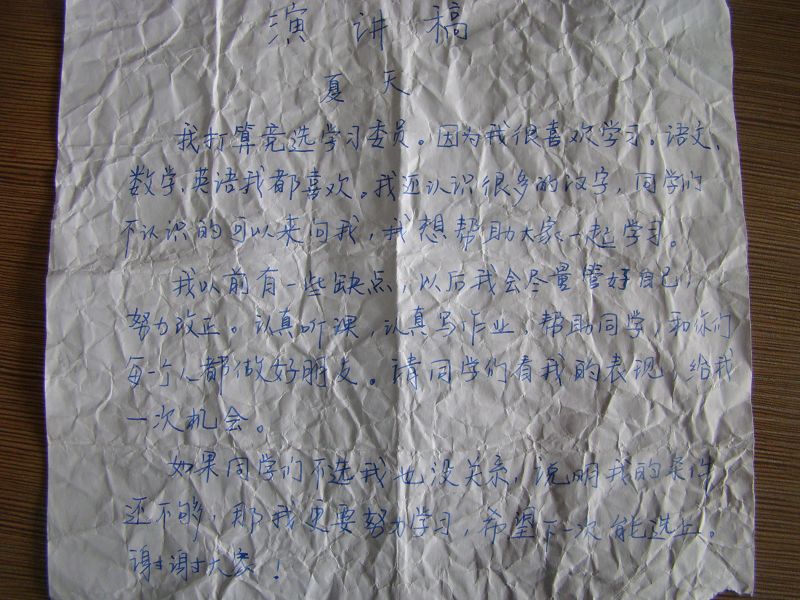 演讲稿
夏天
我打算竞选学习委员。因为我很喜欢学习。语文、
数学,英语我都喜欢。我还认识很多的汉字,同学们
不认识的可以来问我,我想帮助大家一起学习。
我以前有一些缺点,以后我会尽量管好自己,
努力改正。认真听课,认真写作业,帮助同学,和你们
每一个人都做好朋友。请同学们看我的表现,给我
一次机会。
如果同学们不选我也没关系,说明我的条件
还不够,那我更要努力学习,希望下一次能选上。
谢谢大家!